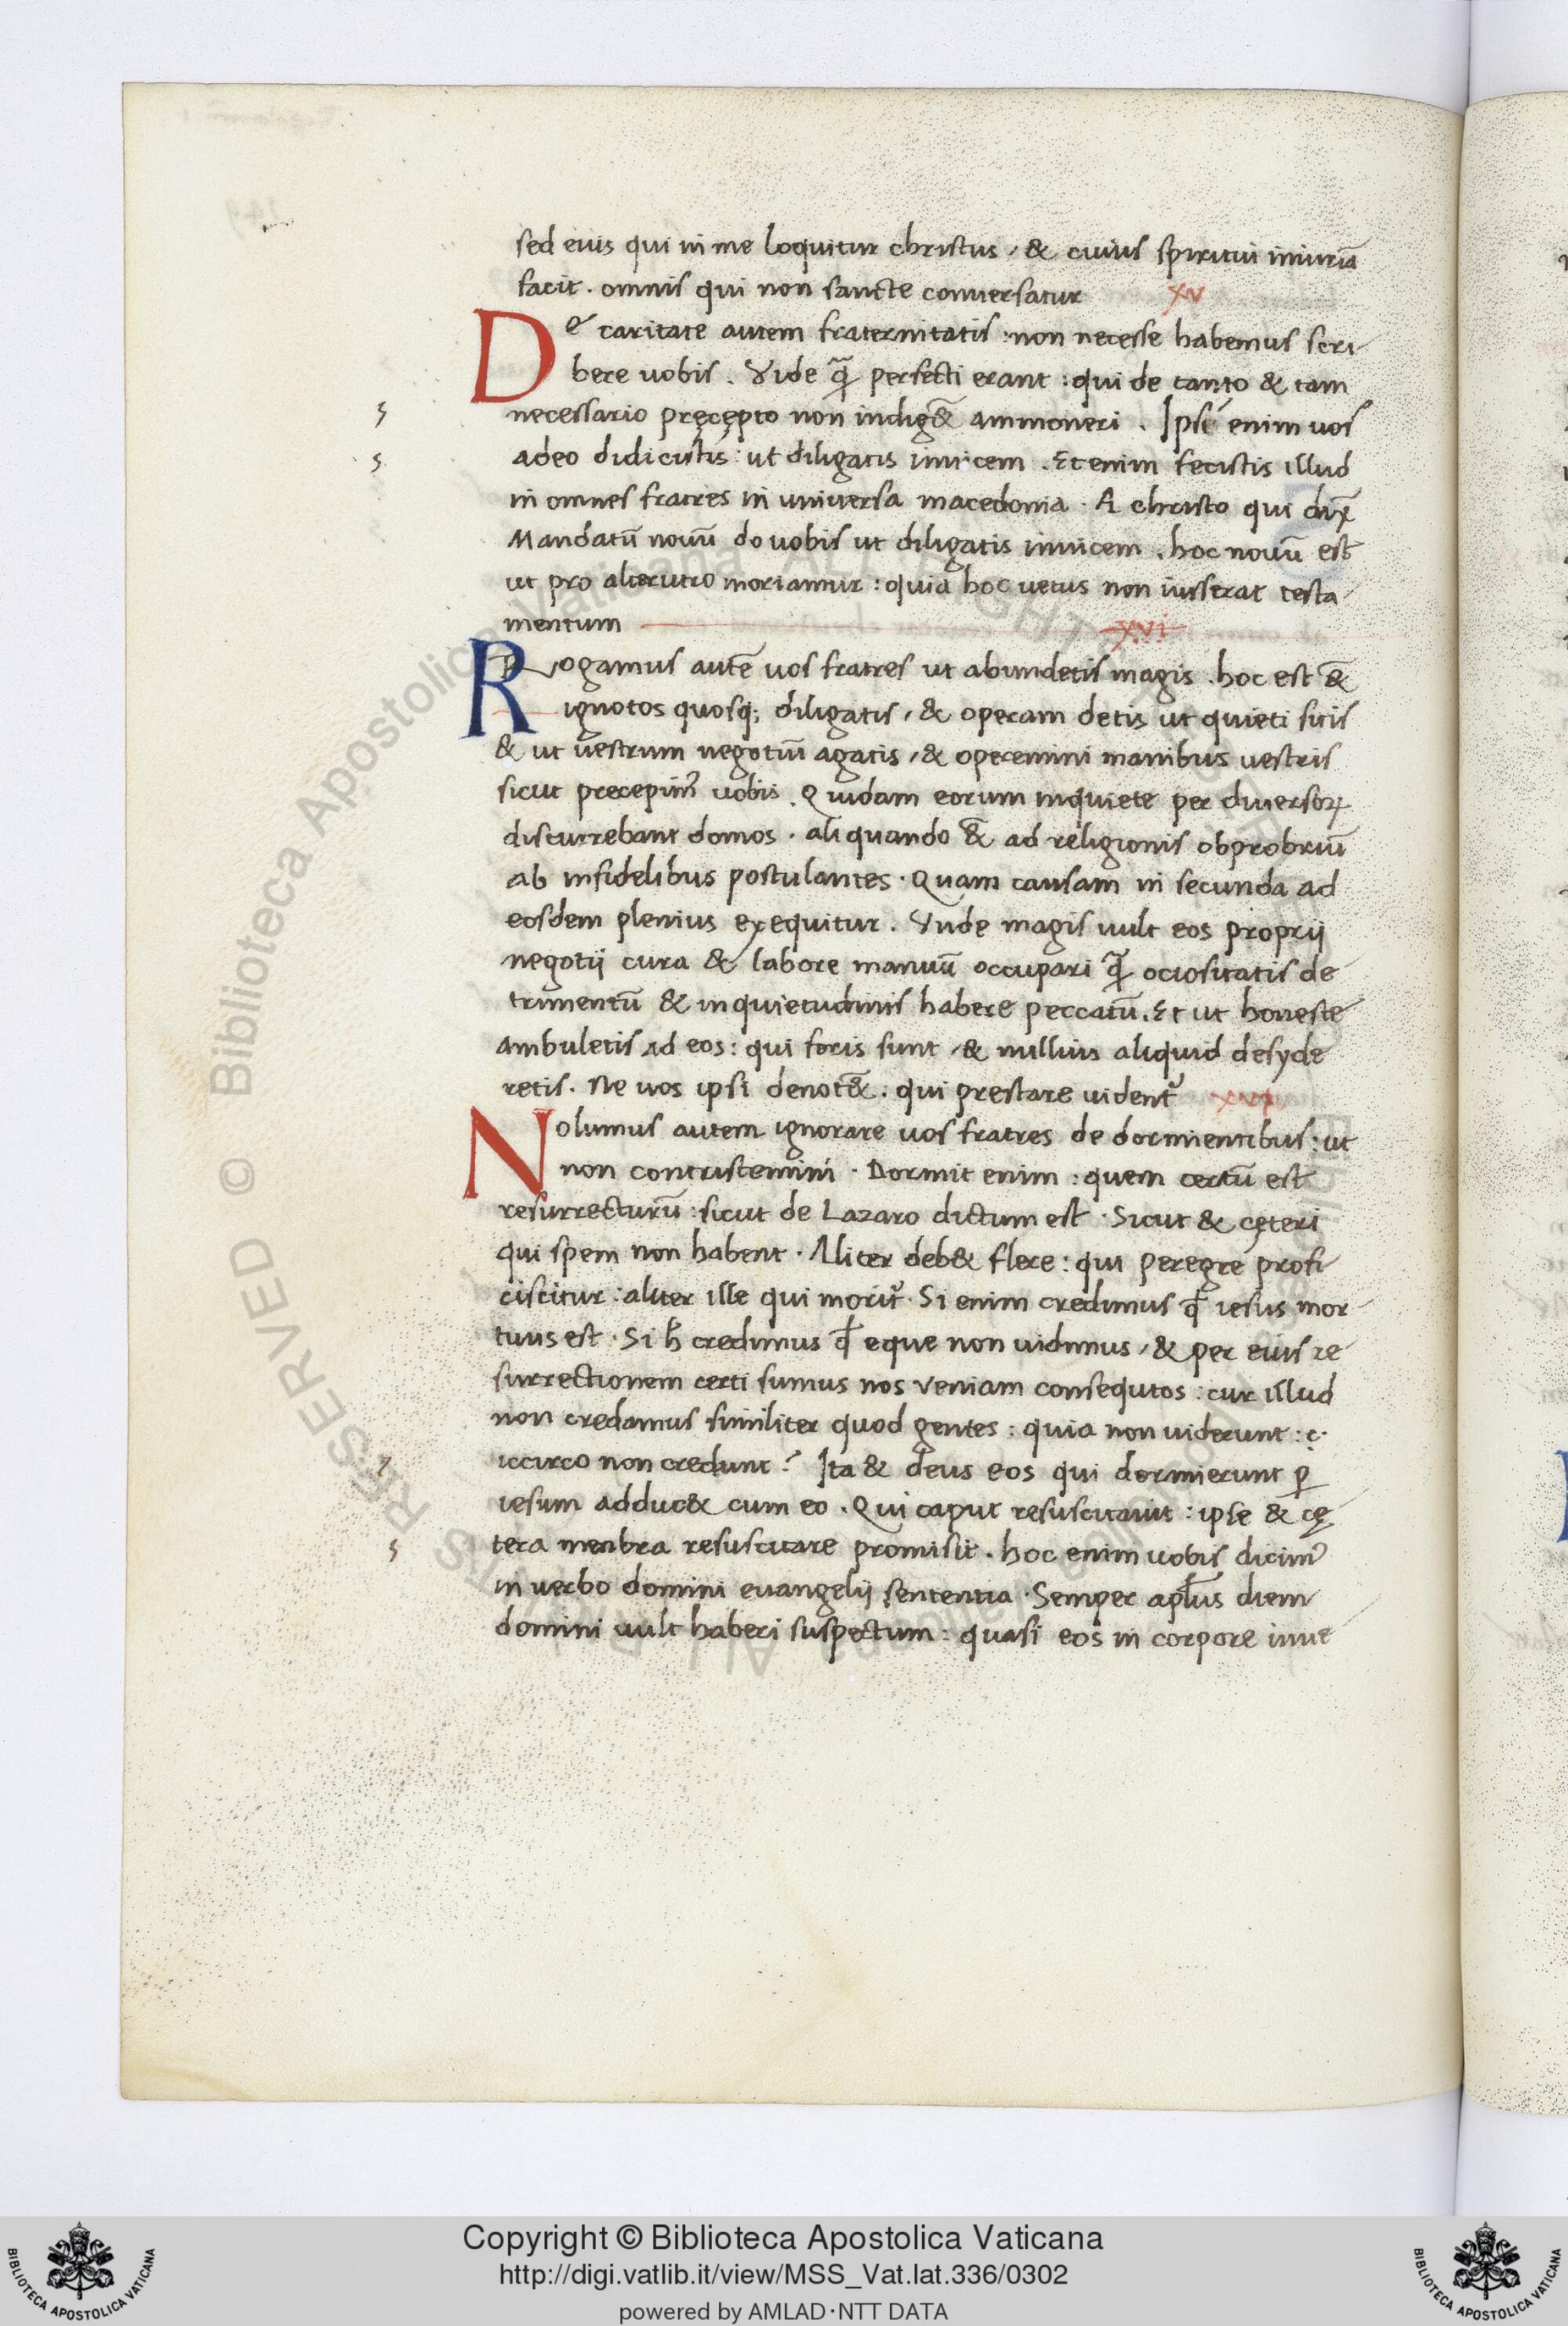 sed eius qui in me loquitur christus, & cuius spiritui iniuriā
facit. omnis qui non sancte conuersatur xv
De caritate autem fraternitatis: non necesse habemus scri
bere uobis. Vide q̄ perfecti erant: qui de tanto & tam
necessario pręcepto non indig& ammoneri. Ipsi enim uos
adeo didicistis: ut diligatis inuicem. Et enim fecistis illud
in omnes fratres in uniuersa macedonia. A christo qui dix̄
Mandatū nouū do uobis ut diligatis inuicem. hoc nouū est
ut pro alterutro moriamur: quia hoc uetus non iusserat testa
mentum xvi
Rogamus autē uos fratres ut abundetis magis. hoc est &
ignotos quosq; diligatis, & operam detis ut quieti sitis
& ut uestrum negotiū agatis, & operemini manibus uestris
sicut precepim' uobis. Quidam eorum inquiete per diuersoꝝ
discurrebant domos. aliquando & ad religionis obprobriū
ab infidelibus postulantes. Quam causam in secunda ad
eosdem plenius exequitur. Vnde magis uult eos proprij
negotij cura & labore manuū occupari q̄ ociositatis de
trimentū & inquietudinis habere peccatū. Et ut honeste
ambuletis ad eos: qui foris sunt, & nullius aliquid desyde
retis. Ne uos ipsi denot&: qui prestare uident' xvi
Nolumus autem ignorare uos fratres de dormientibus: ut
non contristemini. Dormit enim: quem certū est
resurrecturū: sicut de Lazaro dictum est. Sicut & cęteri
qui spem non habent. Aliter deb& flere: qui peregre profi
ciscitur: aliter ille qui morit'. Si enim credimus ꝙ iesus mor
tuus est. Si h̄ credimus ꝙ eque non uidimus, & per eius re
surrectionem certi sumus nos veniam consequtos: cur illud
non credamus similiter quod gentes: quia non uiderunt:
iccirco non credunt? Ita & deus eos qui dormierunt ꝑ
iesum adduc& cum eo. Qui caput resuscitauit: ipse & cę
tera menbra resuscitare promisit. hoc enim uobis dicim'
in uerbo domini euangelij sententia. Semper apl̄us diem
domini uult haberi suspectum: quasi eos in corpore inue
© Biblioteca Apostolica Vaticana ALL RIGHTS RESERVED
Copyright © Biblioteca Apostolica Vaticana
http://digi.vatlib.it/view/MSS_Vat.lat.336/0302
powered by AMLAD·NTT DATA
BIBLIOTECA APOSTOLICA VATICANA
BIBLIOTECA APOSTOLICA VATICANA